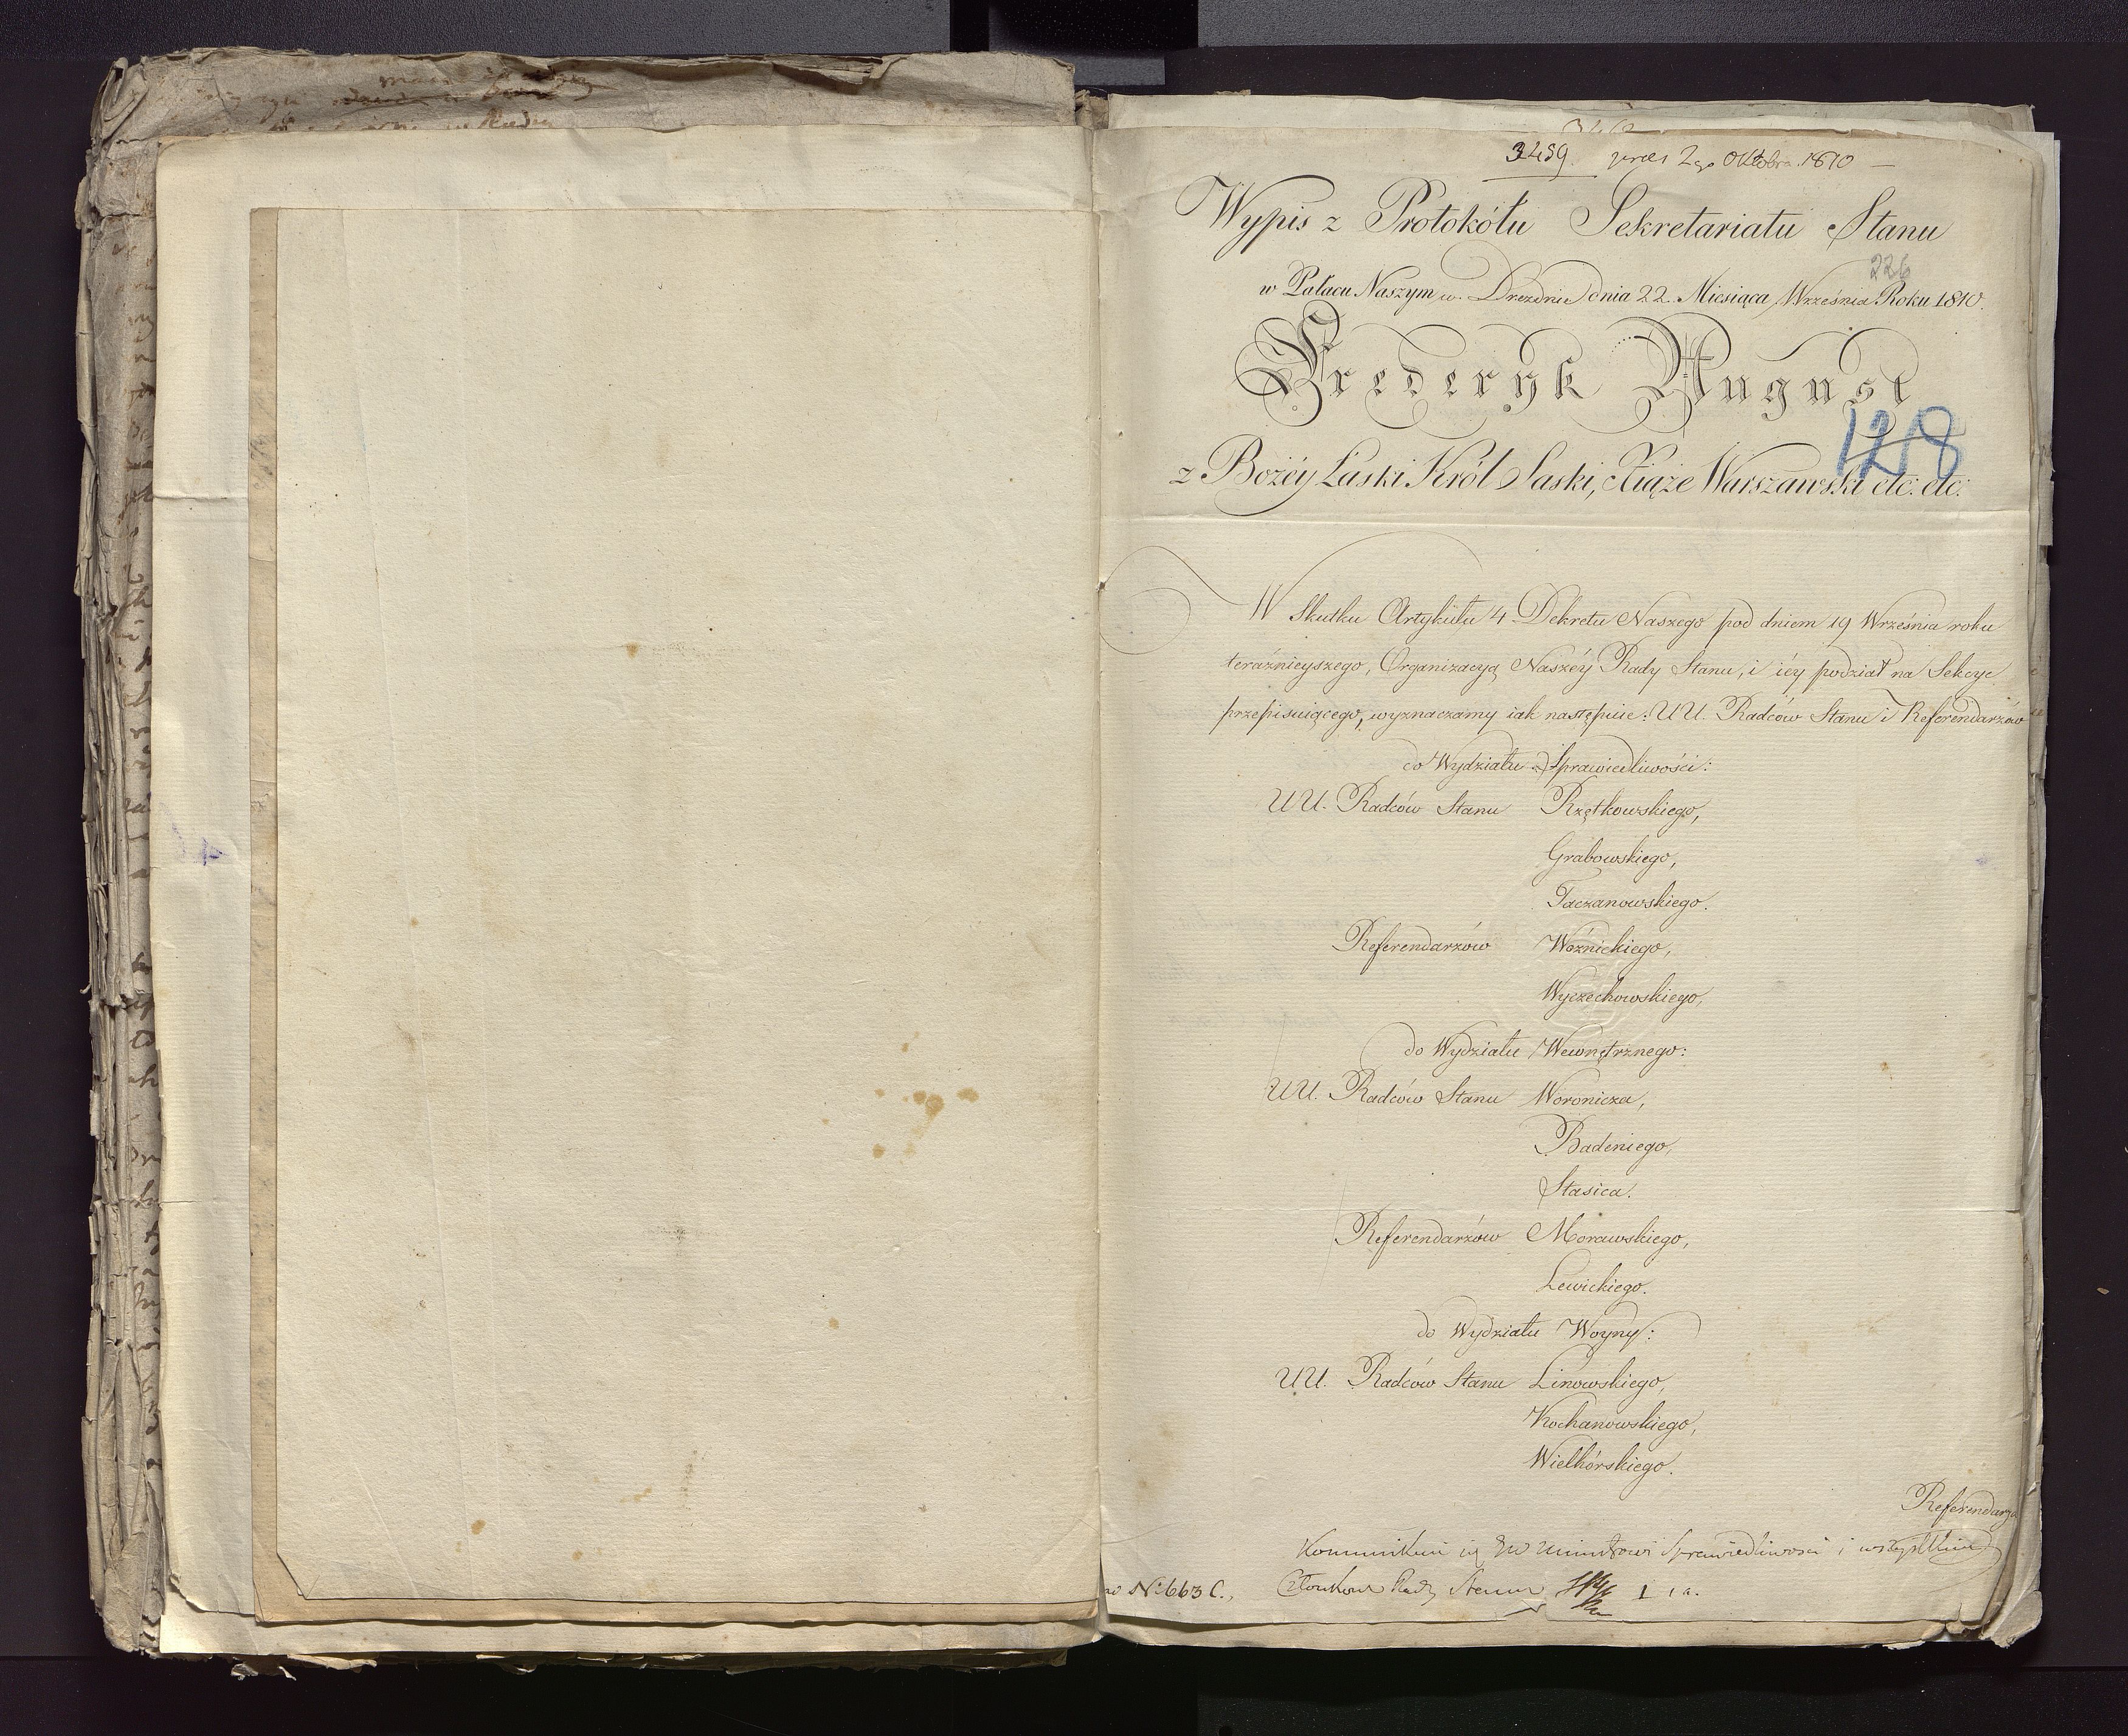 3459. prces 2go Oktobra 1810 —
Wypis z Protokółu Sekretariatu Stanu
226
w Pałacu Naszym w Dreźnie dnia 22. Miesiąca Września Roku 1810.
Fryderyk August
1218
z Bożéy Łaski Król Saski, Xiąże Warszawski etc: etc:
W skutku Artykułu 4 Dekretu Naszego pod dniem 19 Września roku
teraźnieyszego, Organizacyą Naszéy Rady Stanu, i iéy podział na Sekcye
przepisuiącego, wyznaczamy iak następuie: UU. Radców Stanu i Referendarzów
do Wydziału Sprawiedliwości:
UU. Radców Stanu Rzętkowskiego,
Grabowskiego,
Taczanowskiego.
Referendarzów Woźnickiego,
Wyczechowskiego,
do Wydziału Wewnętrznego:
UU. Radców Stanu Woronicza,
Badeniego,
Stasica.
Referendarzów Morawskiego,
Lewickiego.
do Wydziału Woyny:
UU. Radców Stanu Linowskiego,
Kochanowskiego,
Wielhórskiego.
Referendarza
Kommunikuie się JW Ministrowi Sprawiedliwosci i wszystkim
No 663 C., Członkom Rady Stanu